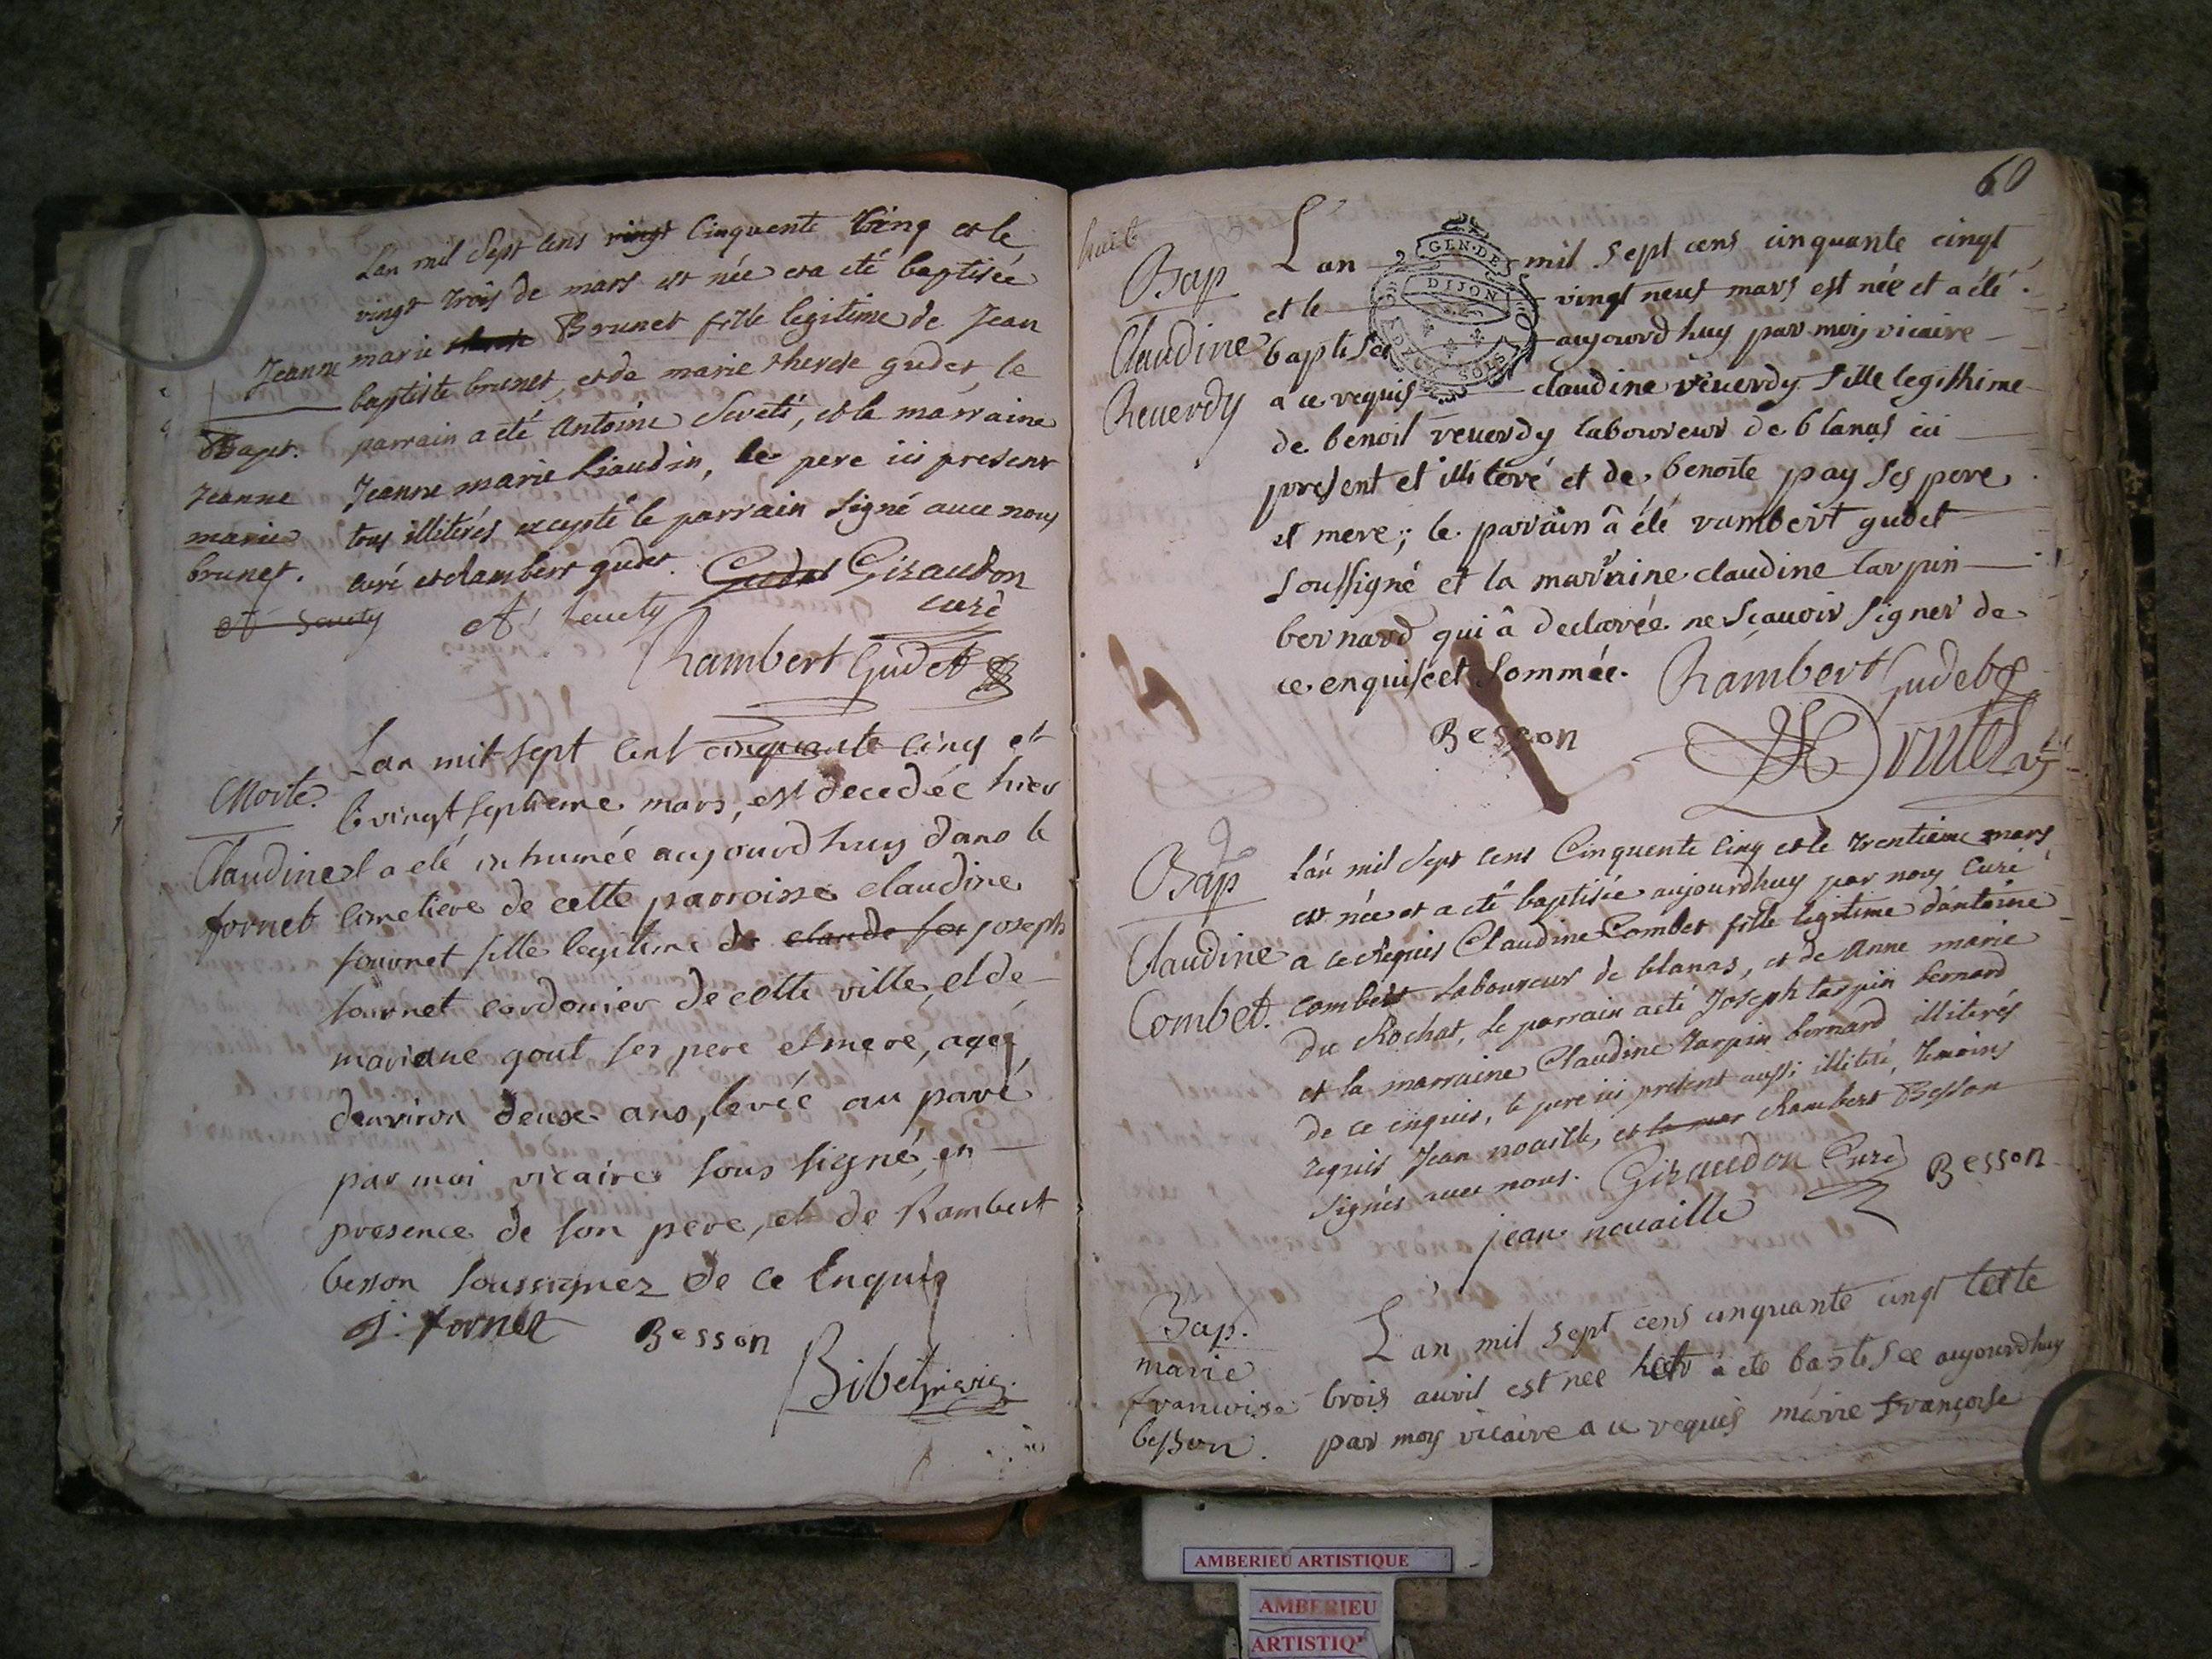 L'an mil Sept Cens vingt Cinquente Cinq et le
vingt trois de mars est née et a eté baptisée
Jeanne marie Brunet fille legitime de Jean
baptiste brunet, et de marie therese gudet, le
Bapt. parrain a eté Antoine Seuety, et la marraine
Jeanne Jeanne marie Liaudin, le pere ici present
marie tous illiterés excepté le parrain signé avec nous
brunet. curé et Rambert gudet. Gudet Giraudon
curé
A Seuety A Seuety
Rambert Gudet
Lan mil sept cent cinquante cinq et
Morte. le vingt septieme mars, est decedée hier
Claudine et a eté inhumée aujourd huy dans le
fornet cimetiere de cette parroisse claudine
fournet fille legitime de claude for joseph
fournet cordonier de cette ville, et de
mariane gout ses pere et mere, agée
denviron deux ans, levée au pavé
par moi vicaire sous signé, en
presence de son pere, et de Rambert
besson soussignez de ce Enquis
J. fornet Besson
Bibet vic.
60
huit
Bap L'an mil sept cens cinquante cinqt
et le vingt neuf mars est née et a été
Claudine baptisée aujourd huy par moy vicaire
Reverdy a ce requis claudine reverdy fille legithime
GEN. DE
DIJON
DEUX SOLS
de benoit reverdy laboureur de blanas ici
present et illiteré et de benoite pay ses pere
et mere; le parrain â été rambert gudet
soussigné et la marraine claudine tarpin
bernard qui â declarée ne sçavoir signer de
ce enquise et sommée. Rambert Gudet
Besson
Bap L'an mil Sept Cens Cinquente Cinq et le trentieme mars
est née et a eté baptisée aujourdhuy par nous Curé
Claudine a ce Requis Claudine Combet fille legitime d'antoine
Combet. combet Laboureur de blanas, et de Anne marie
du Rochat, le parrain a eté Joseph tarpin bernard
et la marraine Claudine tarpin bernard illiterés
de ce enquis, le pere ici present aussi illiteré, temoins
requis Jean nouaille, et la mar Rambert Besson
signés avec nous. Giraudon Curé Besson
jean nouaille
Bap. L'an mil sept cens cinquante cinqt et le
marie trois avril est nee hier a ete baptisee aujourdhuy
francoise par moy vicaire a ce requis marie françoise
besson.
AMBERIEU ARTISTIQUE
AMBERIEU
ARTISTIQ